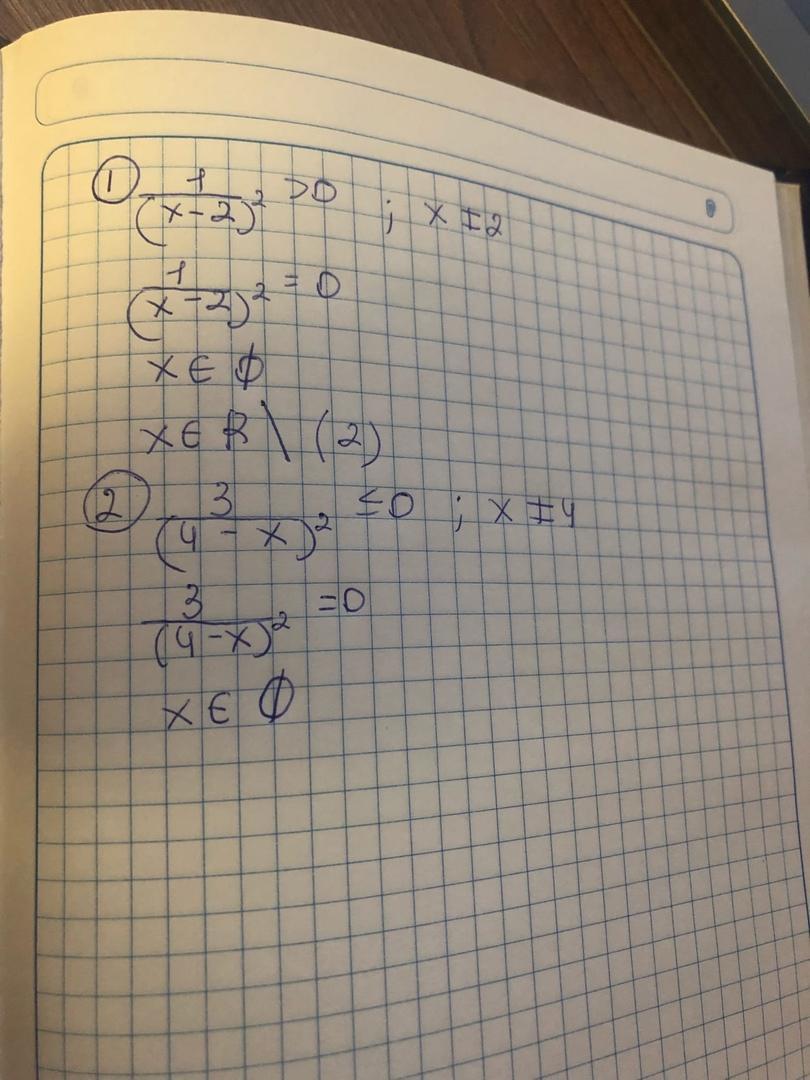 ① 1/(x-2)² >0 ; x≠2
1/(x-2)² = 0
x∈∅
x∈R \ (2)
② 3/(4-x)² ≤0 ; x≠4
3/(4-x)² =0
x∈∅